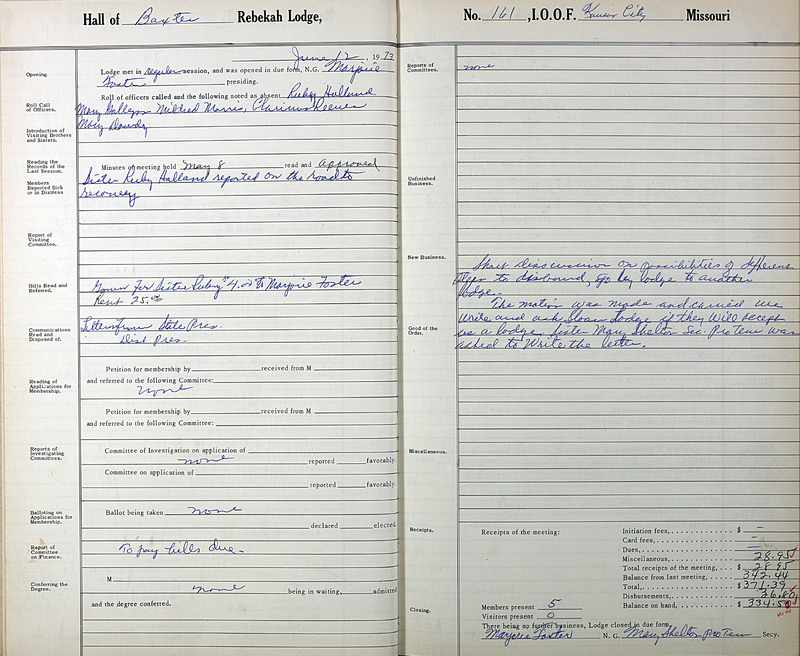 Hall of Baxter Rebekah Lodge,
June 12, 1973
Opening.
Lodge met in regular session, and was opened in due form, N.G. Marjorie
Foster presiding.
Roll Call of Officers.
Roll of officers called and the following noted as absent Ruby Halland
Mary Mildred Morris, Clarissa Reeves
Mary Dowdy
Introduction of Visiting Brothers and Sisters.
Reading the Records of the Last Session.
Minutes of meeting held May 8 read and approved
Members Reported Sick or in Distress
Sister Ruby Halland reported on the road to
recovery
Report of Visiting Committee.
Bills Read and Referred.
for Sister Ruby $4.00 to Marjorie Foster
Rent 25.00
Communications Read and Disposed of.
Letters from State Pres.
Dist Pres.
Petition for membership by received from M
and referred to the following Committee:
Reading of Applications for Membership.
none
Petition for membership by received from M
and referred to the following Committee:
Reports of Investigating Committees.
Committee of Investigation on application of
none reported favorably.
Committee on application of
reported favorably.
Balloting on Applications for Membership.
Ballot being taken none
declared elected.
Report of Committee on Finance.
To pay bills due.
Conferring the Degree.
M
none being in waiting, admitted
and the degree conferred.
No. 161, I.O.O.F. Kansas City Missouri
Reports of Committees.
none
Unfinished Business.
New Business.
Short disscussion on possibilities of different
to disband, go by lodge to another
lodge.
The motion was made and carried we
Good of the Order.
write and ask Sloan Lodge if they will accept
us a lodge. Sister Mary Shelton Sec. Protem was
asked to write the letter.
Miscellaneous.
Receipts.
Receipts of the meeting:
Initiation fees, $ —
Card fees, —
Dues, —
Miscellaneous, 28.95
Total receipts of the meeting, $ 28.95
Balance from last meeting, 342.44
Total, $ 371.39
Disbursements, 36.80
Balance on hand, $ 334.59
Members present 5
Visitors present 0
Closing.
There being no further business, Lodge closed in due form.
Marjorie Foster N. G. Mary Shelton Protem Secy.